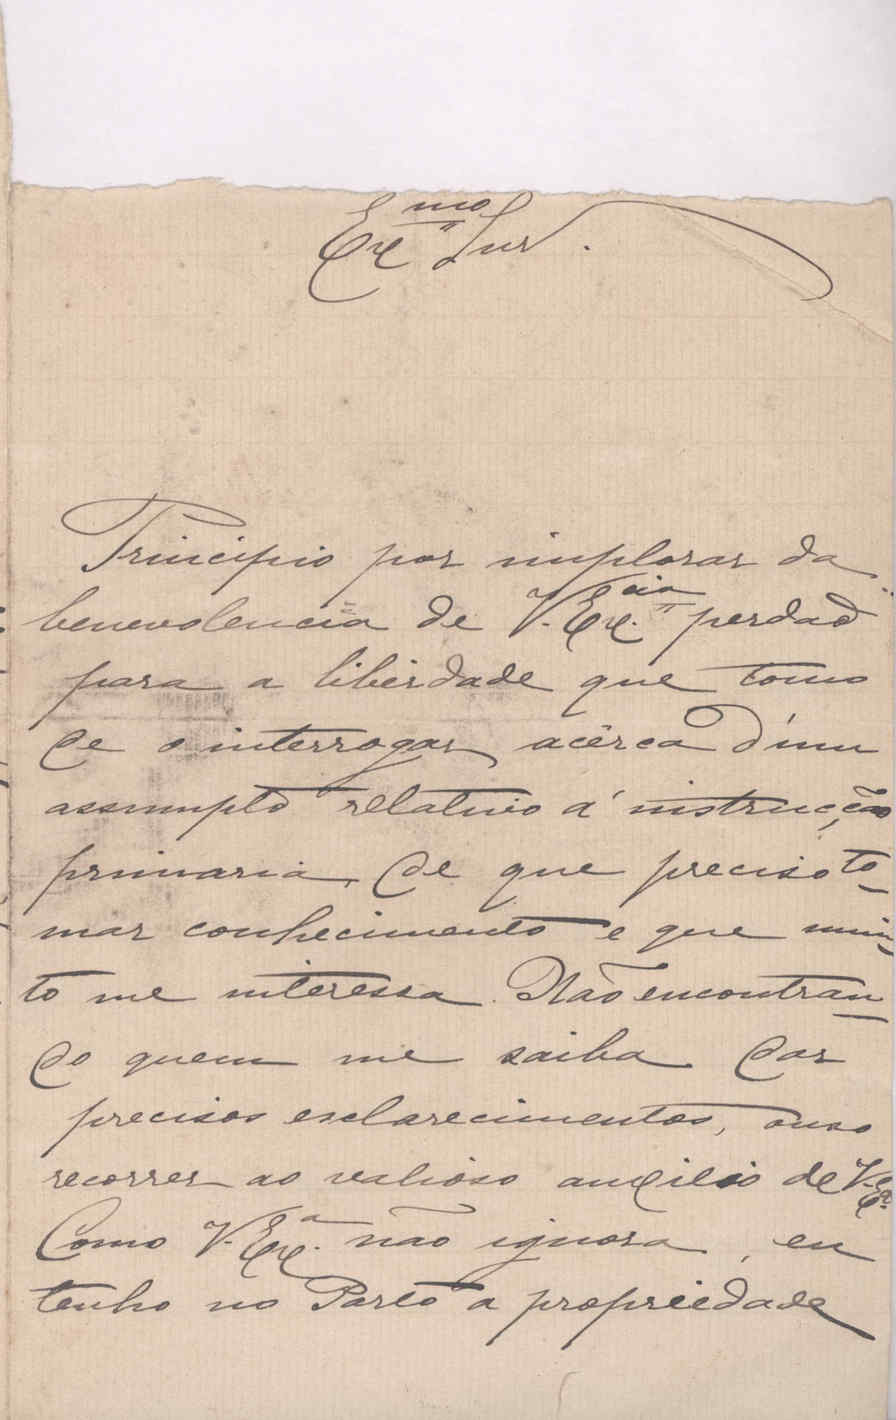 Exmo Snr.
Principio por implorar da
benevolencia de V. Excia perdaõ
para a liberdade que tomo
de o interrogar acêrca d'um
assumpto relativo á instrucção
primaria, de que preciso to-
mar conhecimento e que mui-
to me interessa. Não encontran-
do quem me saiba dar
precisos esclarecimentos, ouso
recorrer ao valioso auxilio de V. Exa.
Como V. Exa. não ignora, eu
tenho no Porto a propriedade